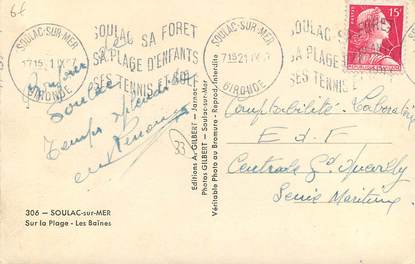 6f
SOULAC-SUR-MER
17 15
GIRONDE
SOULAC SA FORET
SA PLAGE D'ENFANTS
SES TENNIS ET GOLF
SOULAC-SUR-MER
17 15 21
GIRONDE
SOULAC
SA PLAGE
SES TENNIS
15F
Bonjour de
Soulac
Temps
33
Editions A. GILBERT - Jarnac
Photos GILBERT - Soulac-sur-Mer
Véritable Photo au Bromure - Reprod. Interdite
Comptabilité. Laboratoire
E.d.F
Centrale Gd Quevilly
Seine Maritime
306 - SOULAC-sur-MER
Sur la Plage - Les Baïnes